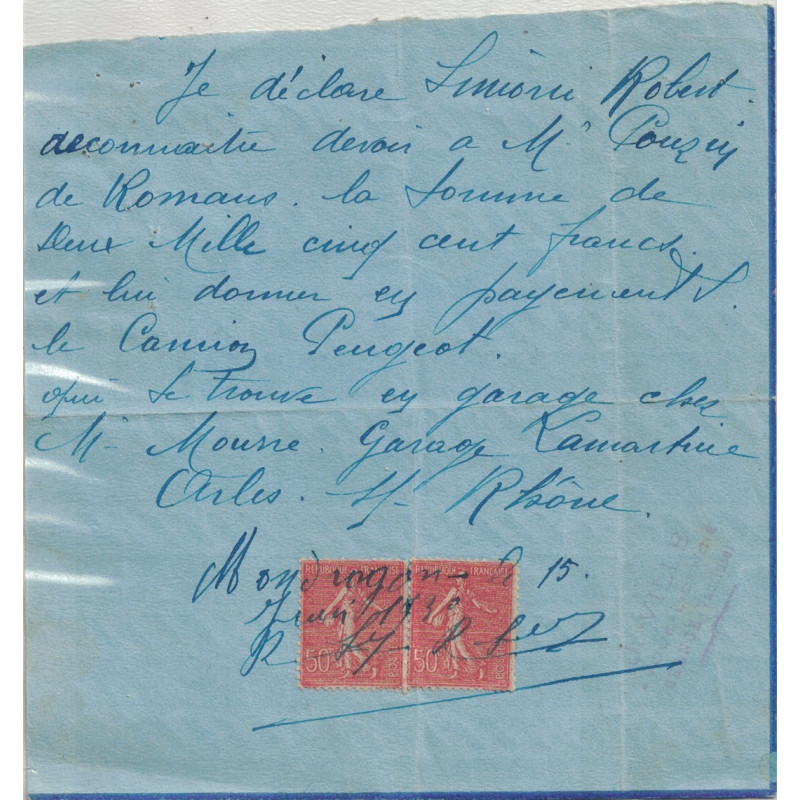 Je déclare Simorni Robert.
reconnaitre devoir a Mr Pouzin
de Romans. la somme de
Deux Mille cinq cent francs.
et lui donner en payement
le Camion Peugeot.
qui se trouve en garage chez
Mr Mourre. Garage Lamartine
Arles. s/- Rhône.
Mondragon 15.
1930
REPUBLIQUE FRANÇAISE REPUBLIQUE FRANÇAISE
50c 50c